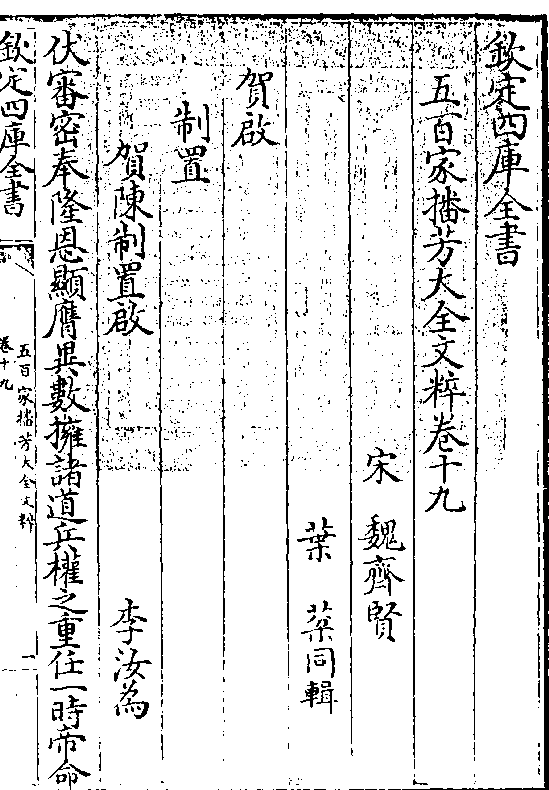 欽定四庫全書
五百家播芳大全文粹卷十九
宋 魏齊賢
葉 棻同輯
賀啟
制置
賀陳制置啟 李汝為
伏審密奉隆恩顯膺異數擁諸道兵權之重任一時帝命
欽定四庫全書
五百家播芳大全文粹
卷十九
一